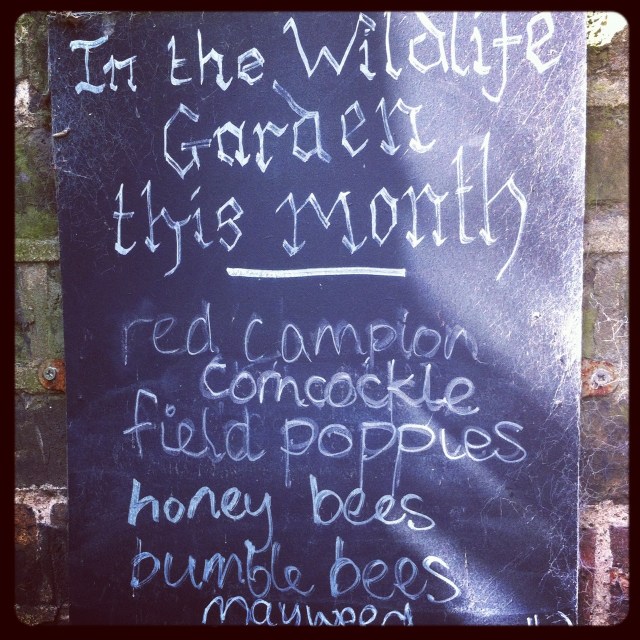 In the Wildlife
Garden
this month
red campion
corncockle
field poppies
honey bees
bumble bees
mayweed